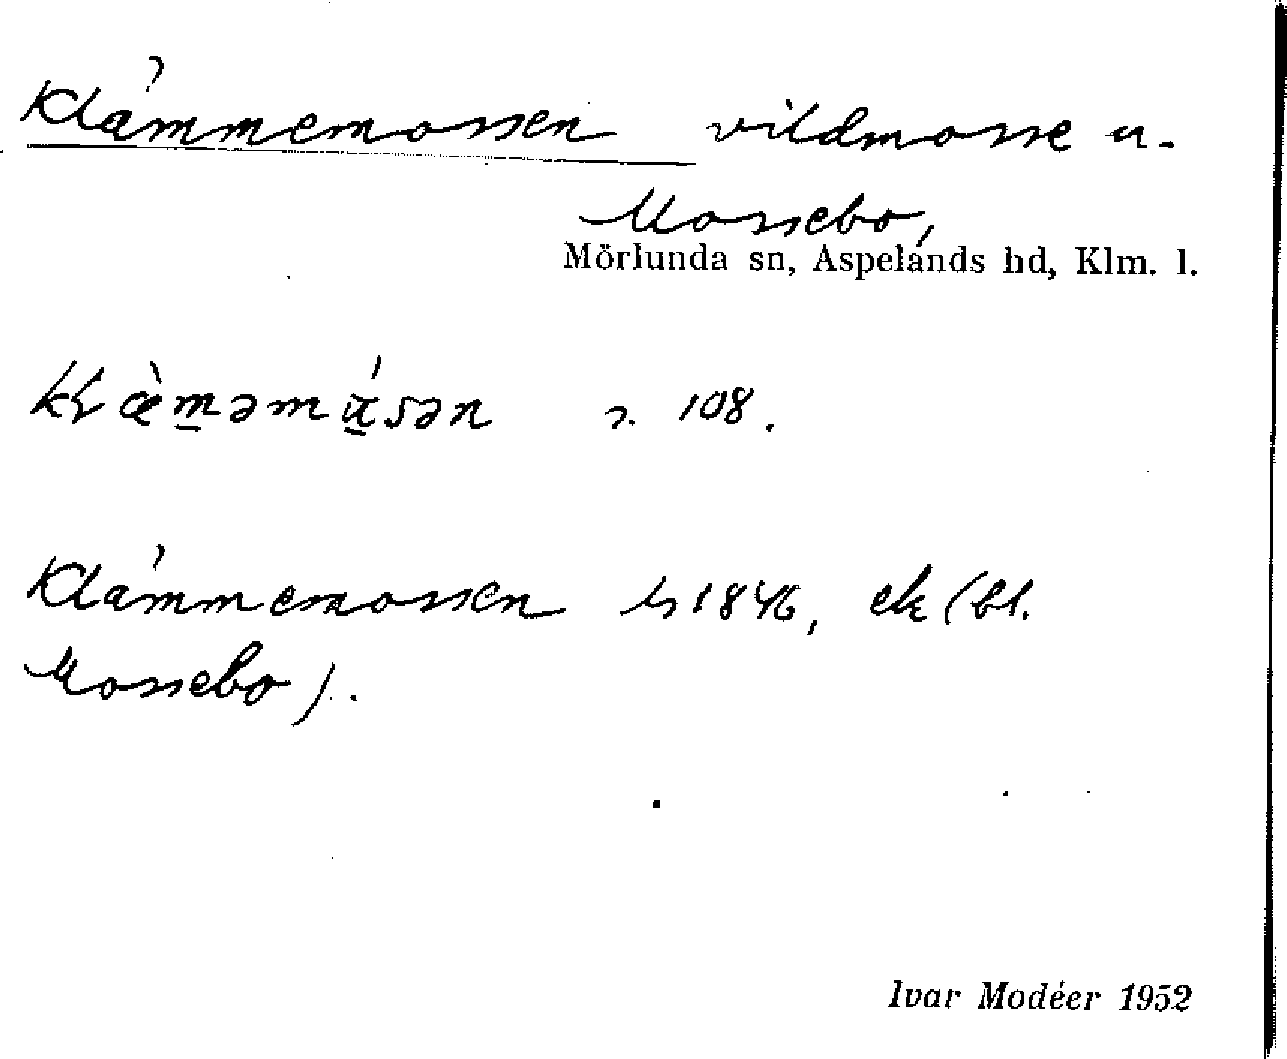 Klämmemossen vildmosse u.
Mossebo,
Mörlunda sn, Aspelands hd, Klm. l.
108.
Klämmemossen ls 1846, ek (bl.
Mossebo).
Ivar Modéer 1952